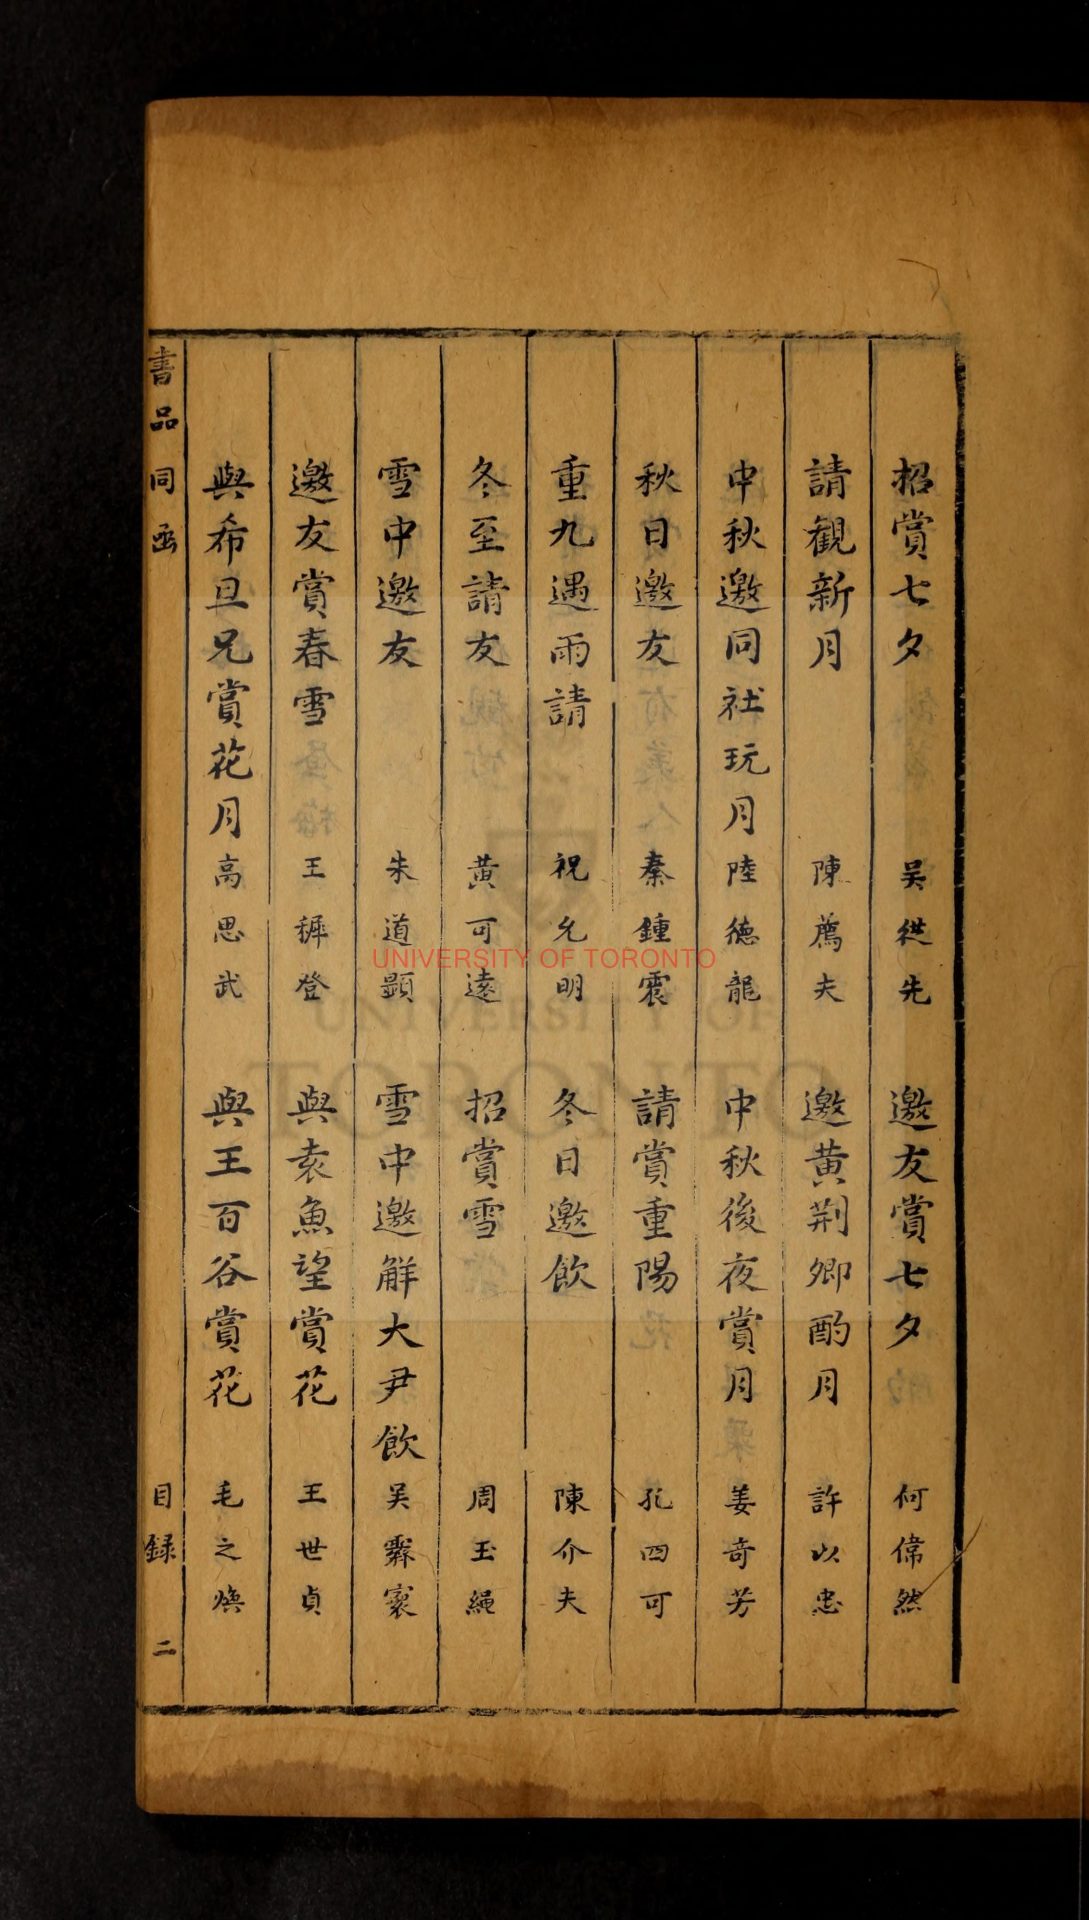 招賞七夕 吴從先 邀友賞七夕 何偉然
請觀新月 陳薦夫 邀黄荆卿酌月 許以忠
中秋邀同社玩月 陸德龍 中秋後夜賞月 姜奇芳
秋日邀友 秦鍾震 請賞重陽 孔四可
重九遇雨請 祝允明 冬日邀飲 陳介夫
冬至請友 黄可遠 招賞雪 周玉繩
雪中邀友 朱道顯 雪中邀解大尹飲 吴霖寰
邀友賞春雪 王穉登 與袁魚望賞花 王世貞
與希旦兄賞花月 高思武 與王百谷賞花 毛之煥
書品同函 目録 二
UNIVERSITY OF TORONTO
UNIVERSITY OF
TORONTO